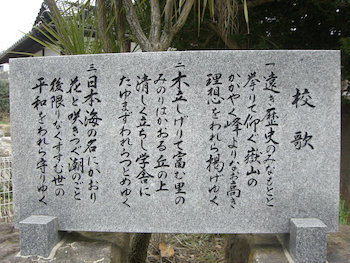 校歌
一 遠き歴史のみなもとと
挙りて仰ぐ嶽山の
かがやく峰よりなお高き
理想をわれら揚げゆく
二 木立しげりて富む里の
みのりはかおる丘の上
清しく立ちし学舎に
たゆまずわれらつとめゆく
三 日本海の名にかおり
花と咲きつぐ潮のごと
後限りなくすすむ世の
平和をわれら守りゆく